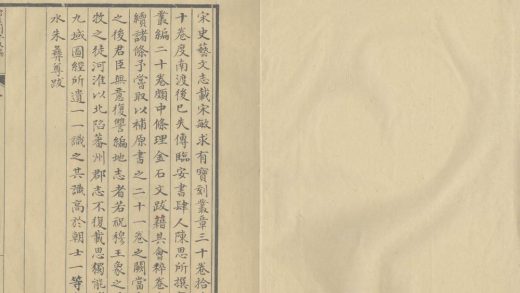 宋史藝文志載宋敏求有寶刻叢章三十卷拾
十卷度南渡後已失傳臨安書肆人陳思所撰
叢編二十卷頗中條理金石文跋籍具會粹卷
續諸條予嘗取以補原書之二十一卷之闕當
之後君臣無意復讐編地志者若祝穆王象之
牧之徒河淮以北陷蕃州郡志不復載思獨能
九域圖經所遺一一識之其識高於朝士一等
水朱彝尊跋